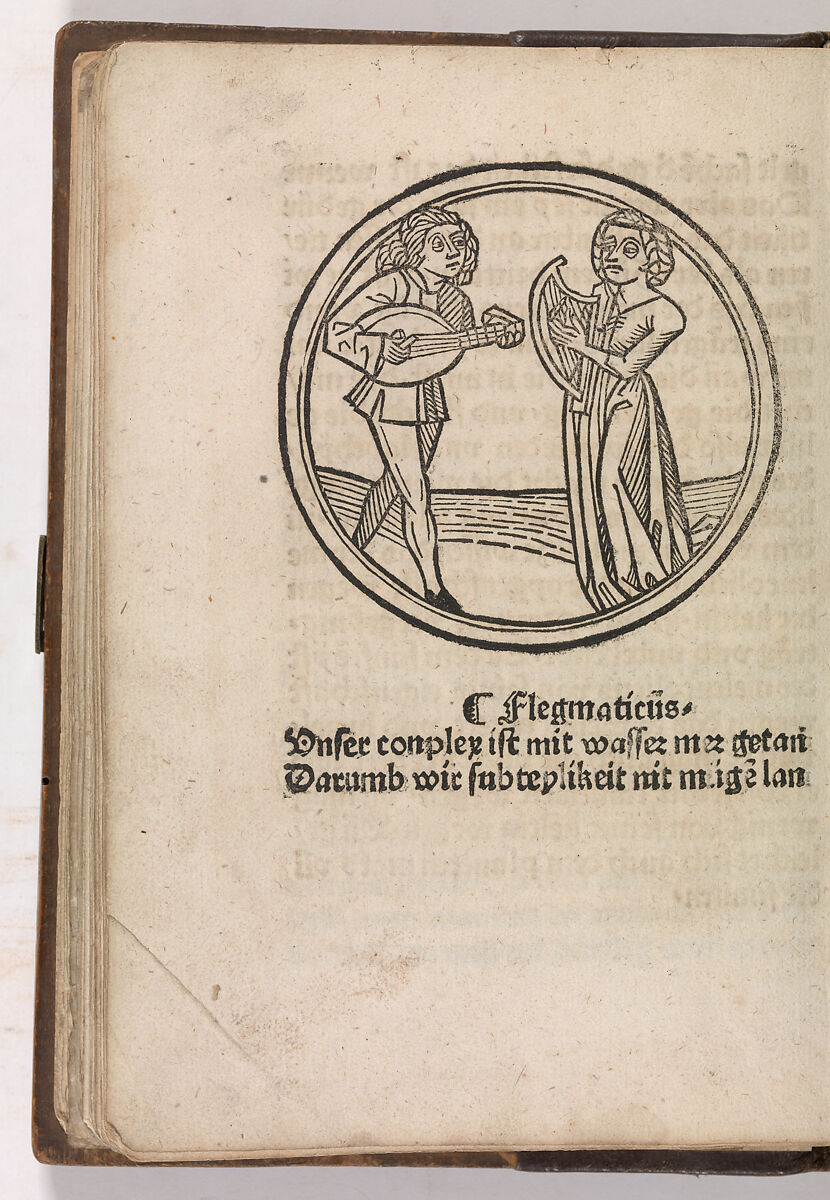 ⸿ Flegmaticūs.
Vnser conplex ist mit wasser mer getan
Darumb wir subteylikeit nit mügē lan